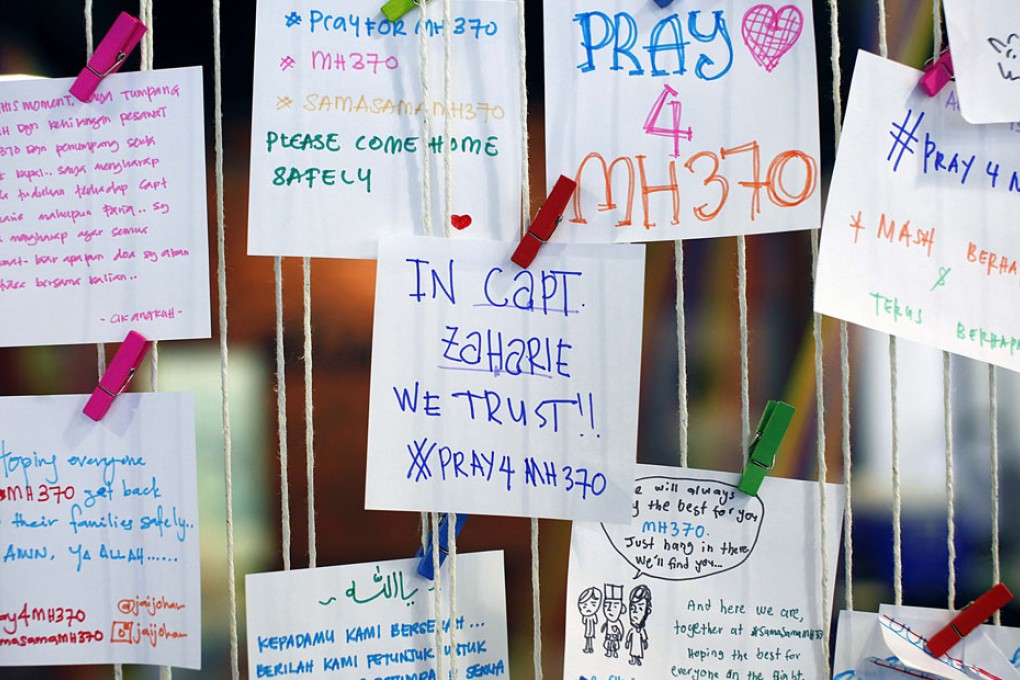 THIS MOMENT, SAYA TUMPANG
DGN KEHILANGAN PESAWAT
370 DGN PENUMPANG SERTA
KAPAL.. SAYA MENGHARAP
TUDUHAN TERHADAP CAPT
MAHUPUN FARIQ.. SY
MENGHARAP AGAR SEMUA
BAR APAPUN DOA SY AKAN
BERSAMA KALIAN..
-CIKANGKUH-
#PrayFOR MH370
* MH370
# SAMASAMAMH370
PLEASE COME HOME
SAFELY
PRAY
4
MH370
#PRAY 4
* MASIH BERHA
&
TERUS BERHARAP
IN CAPT.
ZAHARIE
WE TRUST!!
#PRAY4 MH370
Hoping everyone
#MH370 get back
their families safely..
AMIN, YA ALLAH......
ay4MH370
masamaMH370
@jaijohan
jaijohan
ياالله
KEPADAMU KAMI BERSERAH...
BERILAH KAMI PETUNJUK UNTUK
SEMUA
will always
the best for you
MH370.
Just hang in there
We'll find you...
And here we are,
together at #SamaSamaMH370
Hoping the best for
everyone on the flight.